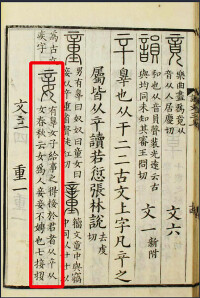 竟 樂曲盡爲竟从
音从人居慶切
文六
韻 和也从音員聲裴光遠云古
與均同未知其審王問切
文一 新附
䇂 辠也从干二二古文上字凡䇂之
屬皆从䇂讀若愆張林說 去虔切
童 男有辠曰奴奴曰童女曰
妾从䇂重省聲徒紅切
籒文童中與竊
中同从廿廿以
爲古文
疾字
妾 有辠女子給事之得接於君者从䇂从
女春秋云女爲人妾妾不娉也七接切
文三 重一